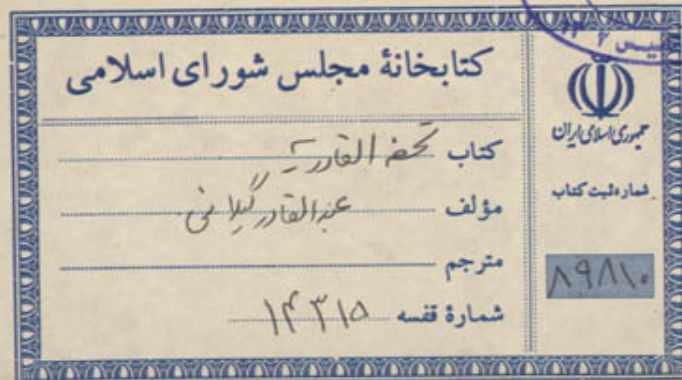 کتابخانهٔ مجلس شورای اسلامی
کتاب تحفه القادریه
مؤلف عبدالقادر گیلانی
مترجم
شمارهٔ قفسه ۱۴۳۱۵
جمهوری اسلامی ایران
شماره ثبت کتاب
۸۹۸۱۰